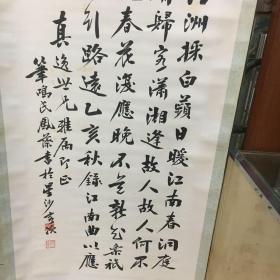 洲採白蘋日暖江南春洞庭
歸客瀟湘逢故人故人何不
春花復應晚不道新知樂祇
行路遠乙亥秋錄江南曲以應
真逸世兄雅屬即正
筆鳴氏鳳藻書於星沙